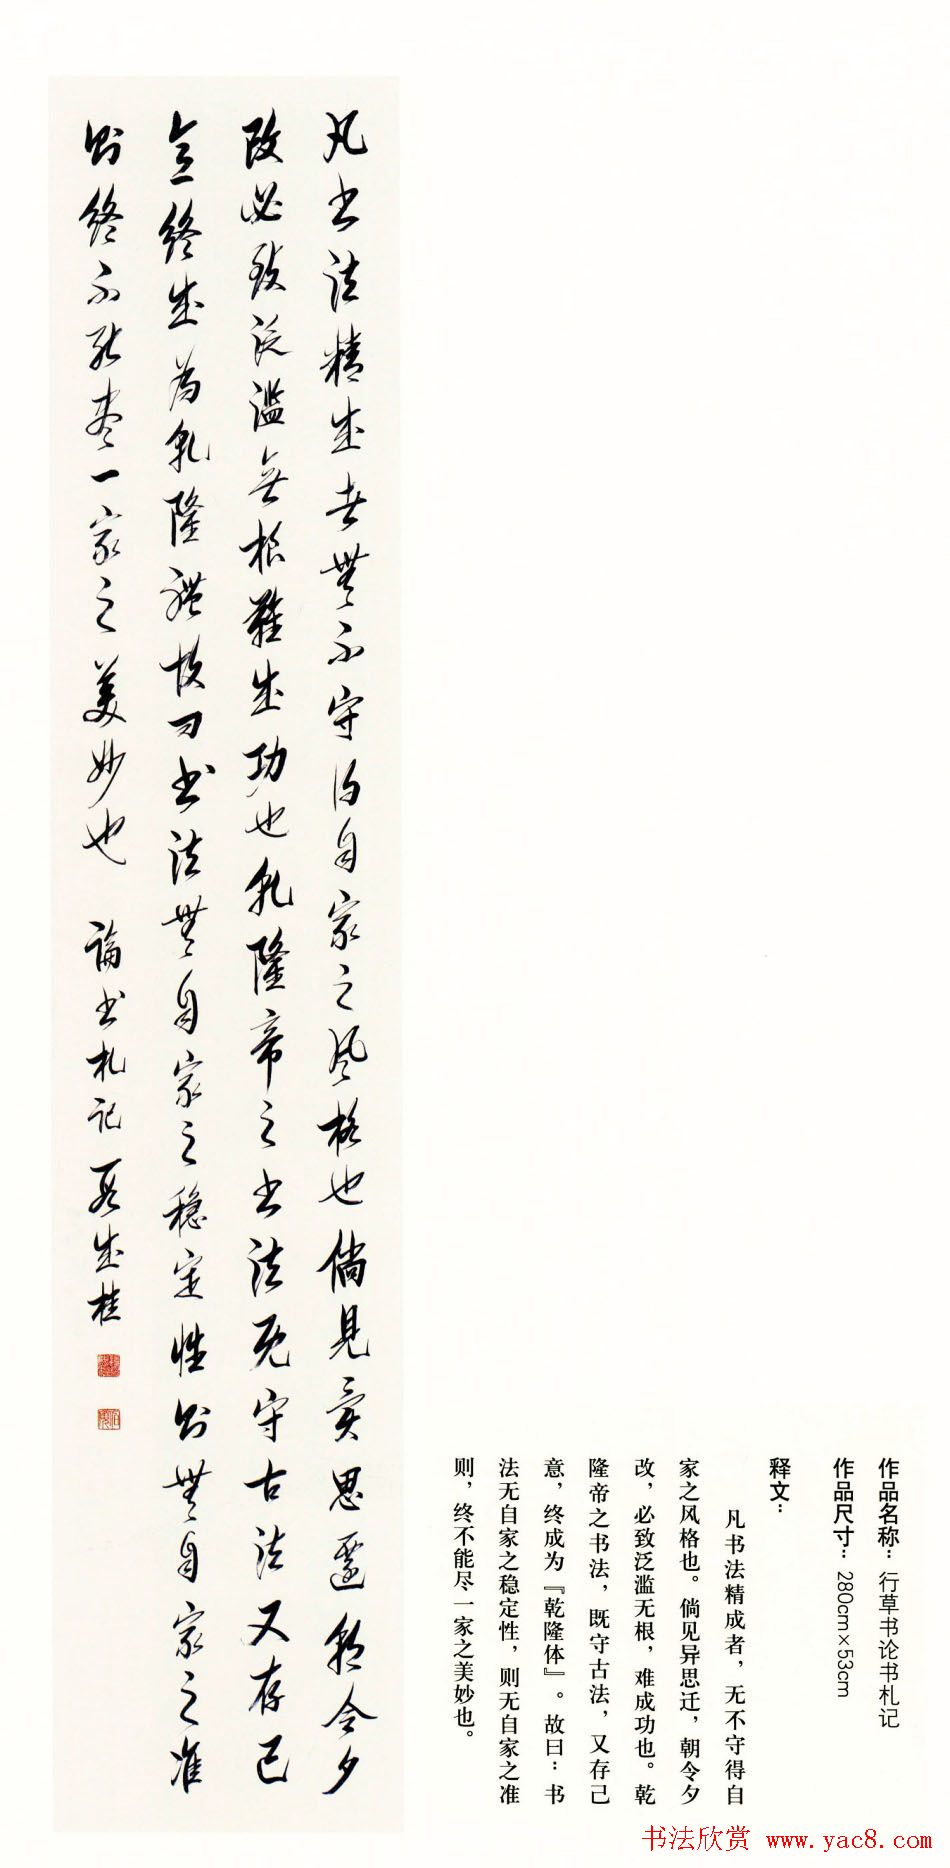 凡書法精成者無不守得自家之風格也倘見異思遷朝令夕
改必致泛濫無根難成功也乾隆帝之書法既守古法又存己
意終成為乾隆體故曰書法無自家之穩定性則無自家之准
則終不能盡一家之美妙也 論書札記 段成桂
作品名称：行草书论书札记
作品尺寸：280cm×53cm
释文：
凡书法精成者，无不守得自
家之风格也。倘见异思迁，朝令夕
改，必致泛滥无根，难成功也。乾
隆帝之书法，既守古法，又存己
意，终成为『乾隆体』。故曰：书
法无自家之稳定性，则无自家之准
则，终不能尽一家之美妙也。
书法欣赏 www.yac8.com